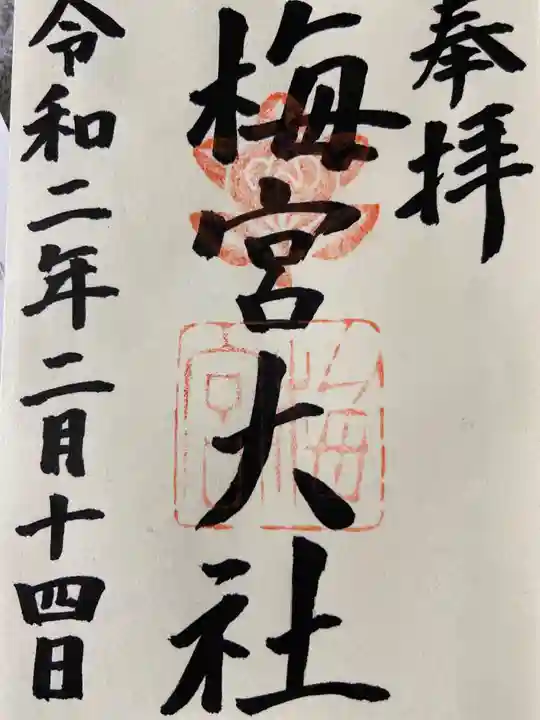 奉拝
梅宮大社
令和二年二月十四日
梅宮